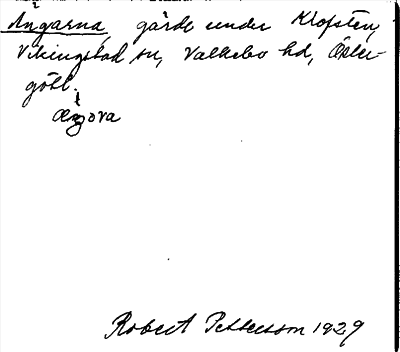 Ängarna, gärde under Klofsten,
Vikingstad sn, Valkebo hd, Öster-
götl.
æŋova
Robert Pettersson 1929